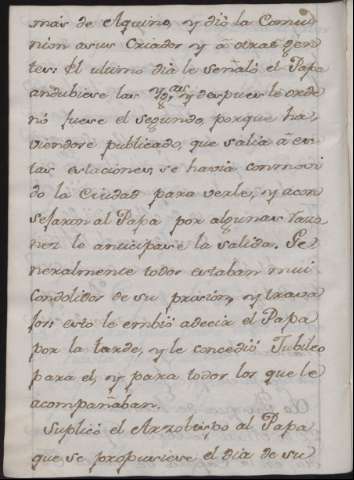 mas de Aquino, y dió la Comu-
nion a sus Criados y a otras gen-
tes: El ultimo dia le señaló el Papa
andubiese las Yg.as y despues le orde-
nó fuese el segundo, porque ha-
viendose publicado, que salia a es-
tas estaciones, se havia conmovi-
do la Ciudad para verle, y acon-
sejaron al Papa por algunas razo-
nes le anticipase la salida. Ge-
neralmente todos estaban mui
condolidos de su prasion, y trava-
jos: esto le embió a decir el Papa
por la tarde, y le concedió Jubileo
para el, y para todos los que le
acompañaban.
Suplicó el Arzobispo al Papa
que se propusiese el dia de su